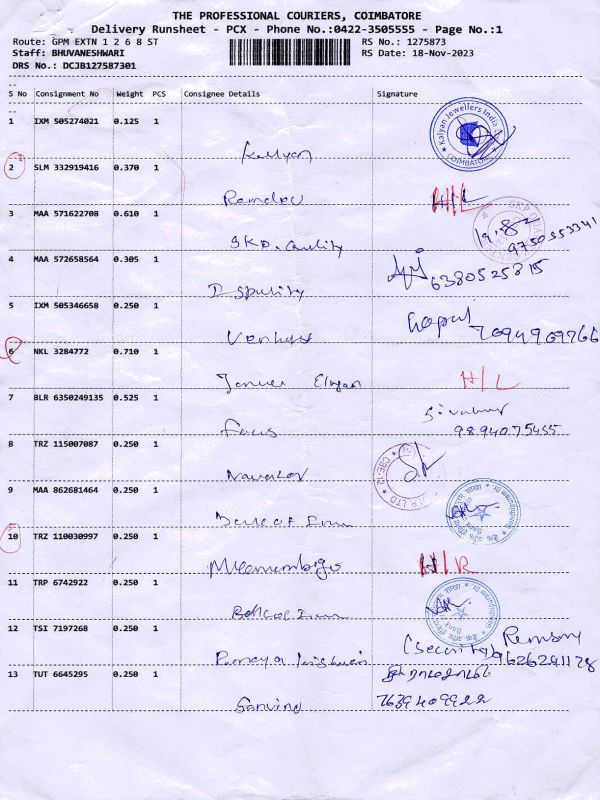 THE PROFESSIONAL COURIERS, COIMBATORE
Delivery Runsheet - PCX - Phone No.:0422-3505555 - Page No.:1
Route: GPM EXTN 1 2 6 8 ST RS No.: 1275873
Staff: BHUVANESHWARI RS Date: 18-Nov-2023
DRS No.: DCJB127587301
S No Consignment No Weight PCS Consignee Details Signature
1 IXM 505274021 0.125 1 Kallyan
Kalyan Jewellers India COIMBATORE
2 SLM 332919416 0.370 1 H/L
3 MAA 571622708 0.610 1 SKP. Quality 9750353341
4 MAA 572658564 0.305 1 6380525815
5 IXM 505346658 0.250 1 Gopal 7094909766
6 NKL 3284772 0.710 1 H/L
7 BLR 6350249135 0.525 1 Focus 9894075455
8 TRZ 115007087 0.250 1
CBE-12
9 MAA 862681464 0.250 1
10 TRZ 110030997 0.250 1 H/R
11 TRP 6742922 0.250 1
12 TSI 7197268 0.250 1 (security) 9626291178
13 TUT 6645295 0.250 1 7639409922